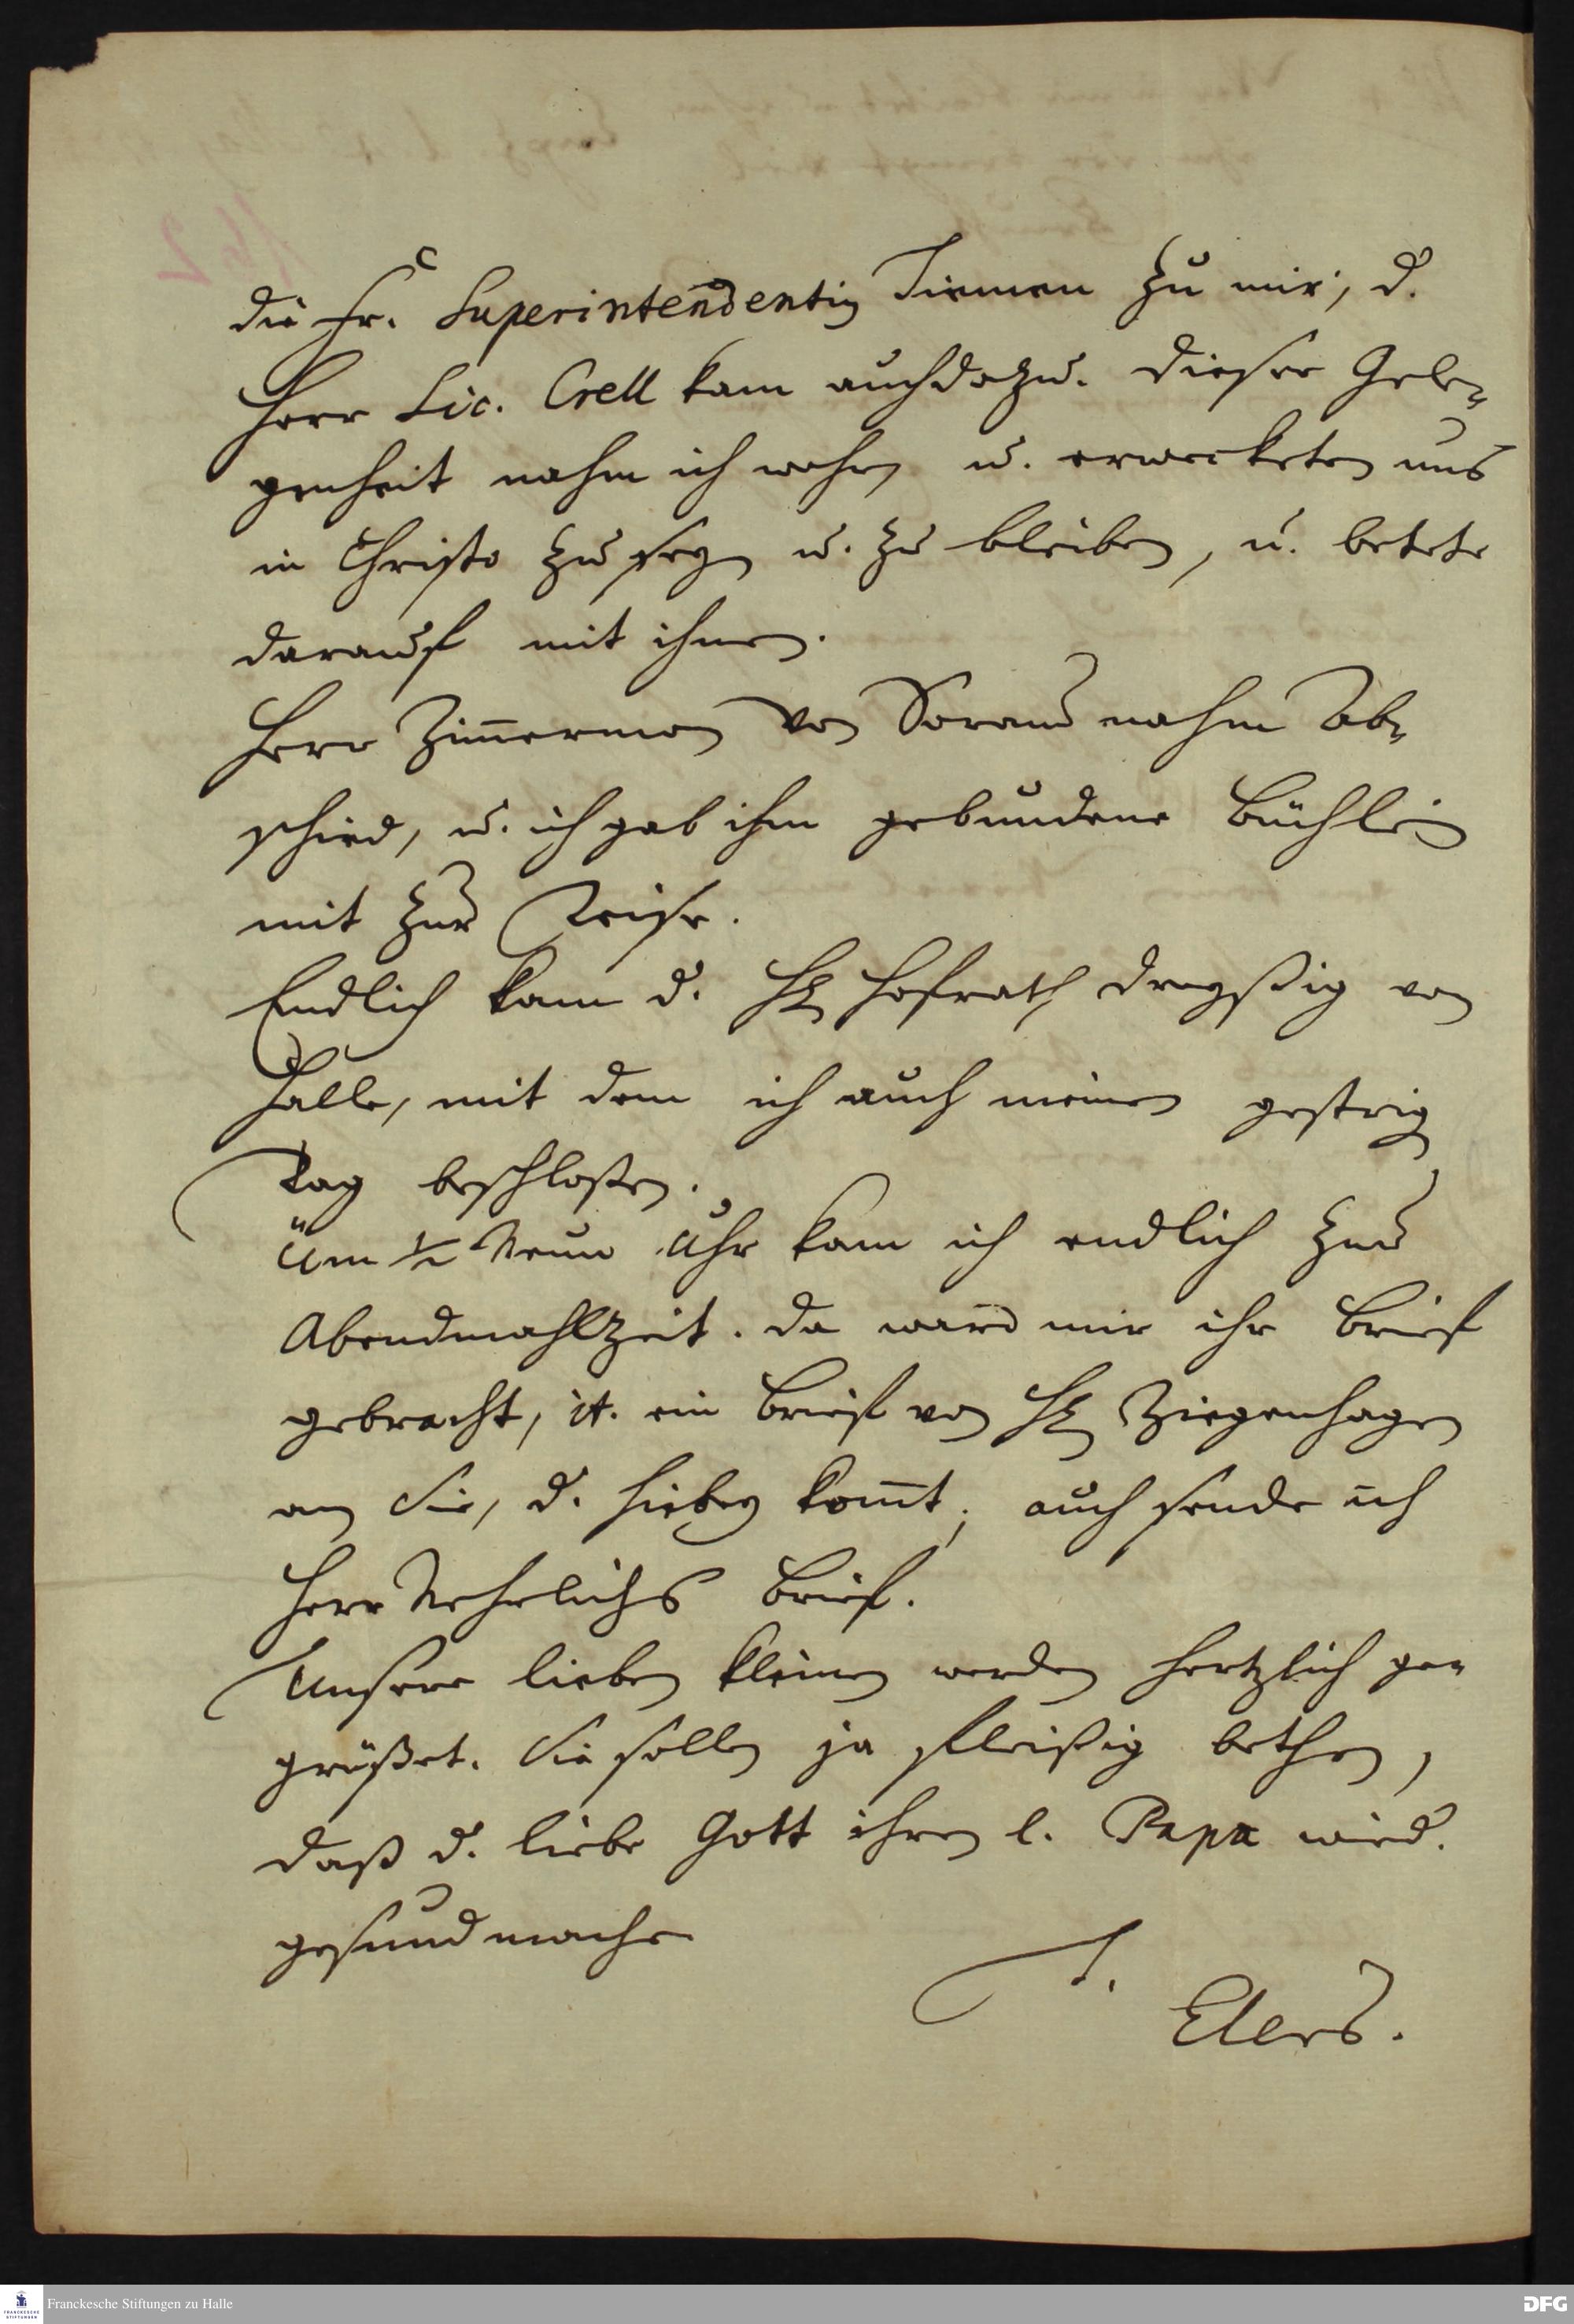 die Fr. Superintendentin Tiemen zu mir, d.
Herr Lic. Crell kam auch dazu. Dieser Gele-
genheit nahm ich wahr, u. erweckten uns
in Christo zu seyn u. zu bleiben, u. betete
darauf mit ihnen.
Herr Zimmerman von Sorau nahm Ab-
schied, u. ich gab ihm gebundene Büchlein
mit zur Reise.
Endlich kam d. H. Hofrath Dreyßig von
Halle, mit dem ich auch meinen gestrig
Tag beschloßen.
Um ½ Neun Uhr kam ich endlich zur
Abendmahlzeit. Da ward mir ihr Brief
gebracht, it. ein Brief von H. Ziegenhagen
an Sie, d. hiebey kommt; auch sende ich
Herr Brief.
Unsere lieben kleinen werden hertzlich ge-
grüßet. Sie sollen ja fleißig bethen,
daß d. liebe Gott ihren l. Papa wied.
gesund mache
Elers.
Franckesche Stiftungen zu Halle
DFG